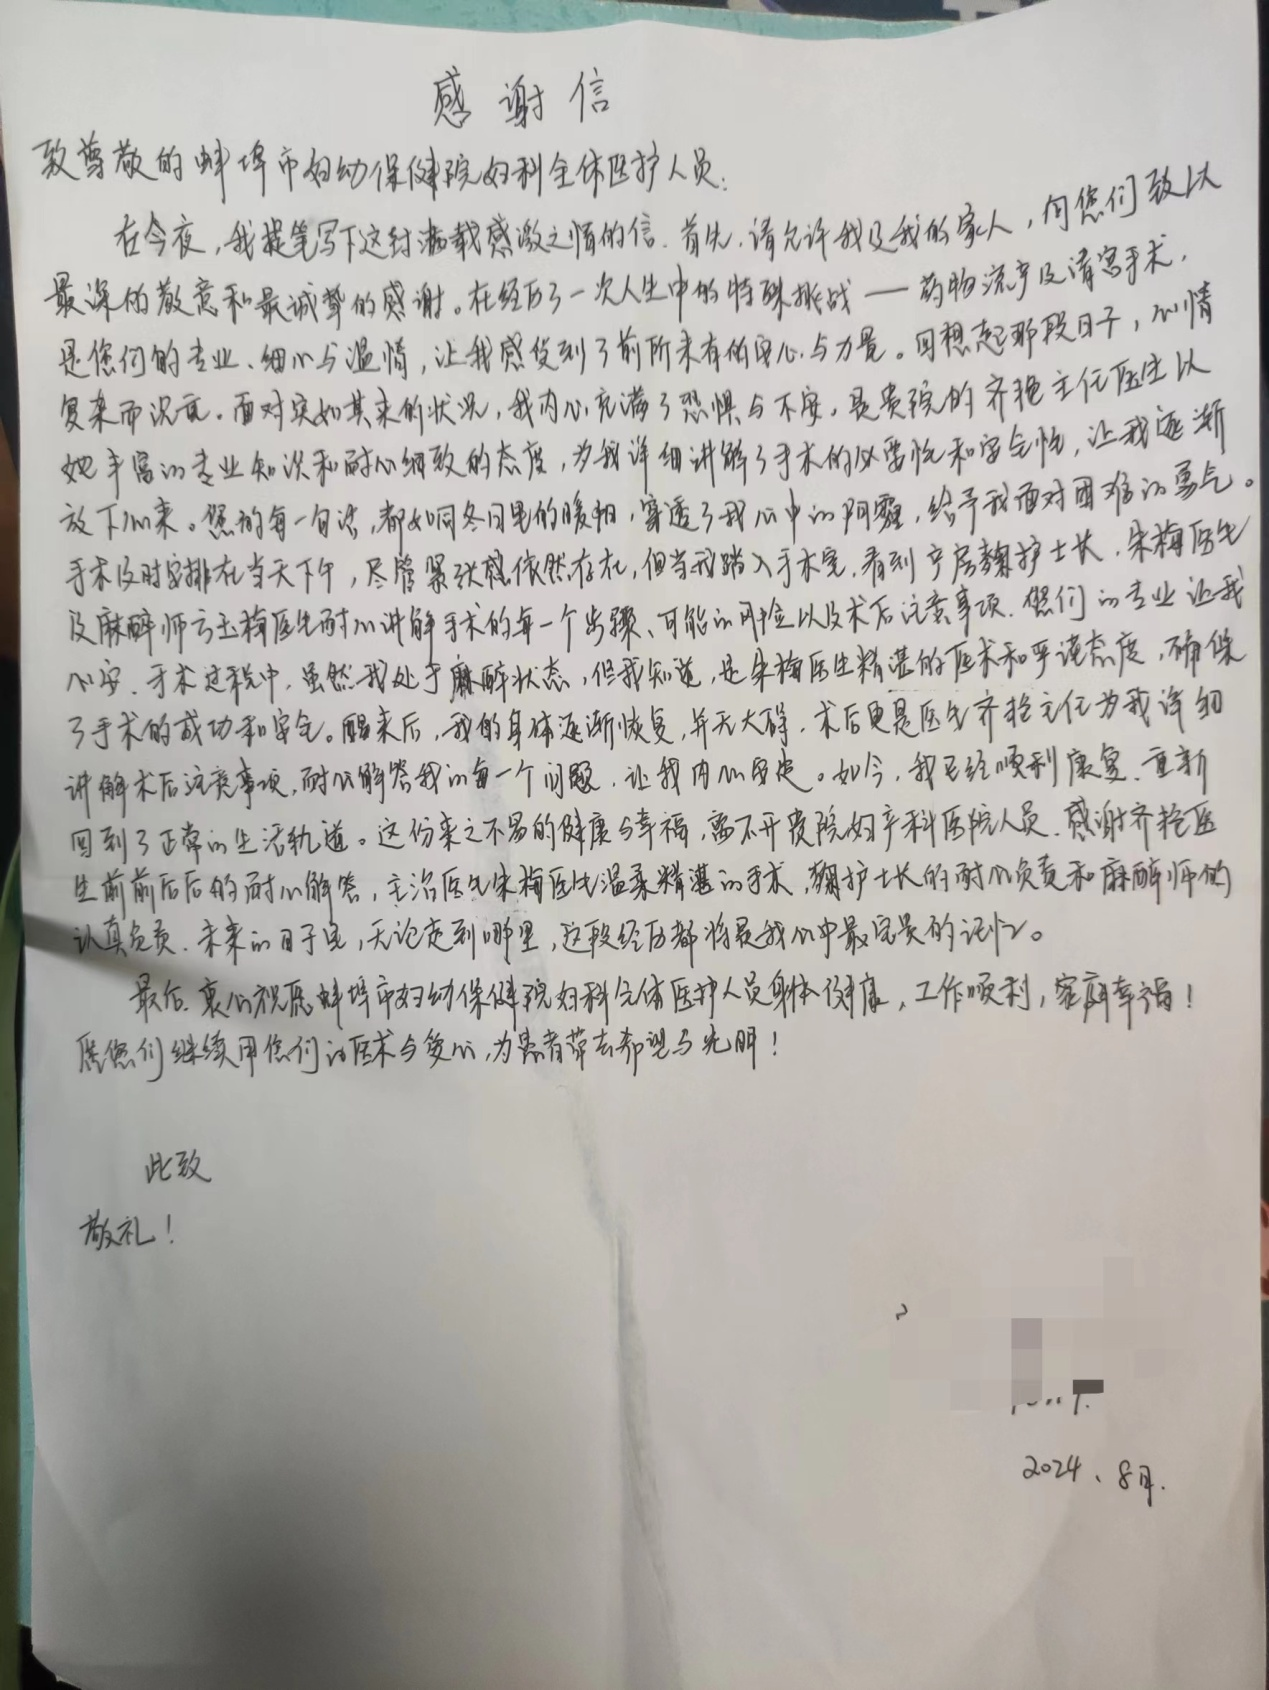 感谢信
致尊敬的蚌埠市妇幼保健院妇科全体医护人员:
在今夜,我提笔写下这封满载感激之情的信。首先,请允许我及我的家人,向您们致以
最深的敬意和最诚挚的感谢。在经历了一次人生中的特殊挑战——药物流产及清宫手术,
是您们的专业、细心与温情,让我感受到了前所未有的安心与力量。回想起那段日子,心情
复杂而沉重。面对突如其来的状况,我内心充满了恐惧与不安,是贵院的齐艳主任医生以
她丰富的专业知识和耐心细致的态度,为我详细讲解了手术的必要性和安全性,让我逐渐
放下心来。您的每一句话,都如同冬日里的暖阳,穿透了我心中的阴霾,给予我面对困难的勇气。
手术及时安排在当天下午,尽管紧张感依然存在,但当我踏入手术室,看到产房魏护士长、朱梅医生
及麻醉师玉梅医生耐心讲解手术的每一个步骤、可能的风险以及术后注意事项,您们的专业让我
心安,手术过程中,虽然我处于麻醉状态,但我知道,是朱梅医生精湛的医术和严谨态度,确保
了手术的成功和安全。醒来后,我的身体逐渐恢复,并无大碍,术后更是医生齐艳主任为我详细
讲解术后注意事项,耐心解答我的每一个问题,让我内心安定。如今,我已经顺利康复,重新
回到了正常的生活轨道。这份来之不易的健康与幸福,离不开贵院妇产科医院人员,感谢齐艳医
生前前后后的耐心解答,主治医生朱梅医生温柔精湛的手术,魏护士长的耐心负责和麻醉师的
认真负责,未来的日子里,无论走到哪里,这段经历都将是我心中最宝贵的记忆。
最后,衷心祝愿蚌埠市妇幼保健院妇科全体医护人员身体健康,工作顺利,家庭幸福!
愿您们继续用您们的医术与爱心,为患者带去希望与光明!
此致
敬礼!
2024、8月.